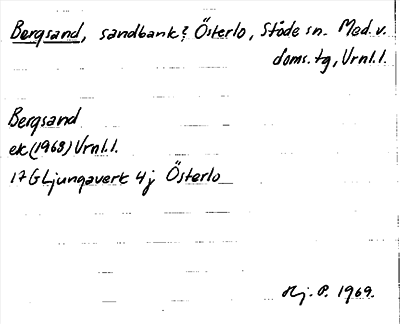 Bergsand, sandbank? Österlo, Stöde sn. Med. v.
doms. tg, Vrnl. l.
Bergsand
ek (1968) Vrnl. l.
17G Ljungaverk 4j Österlo
Hj. P. 1969.